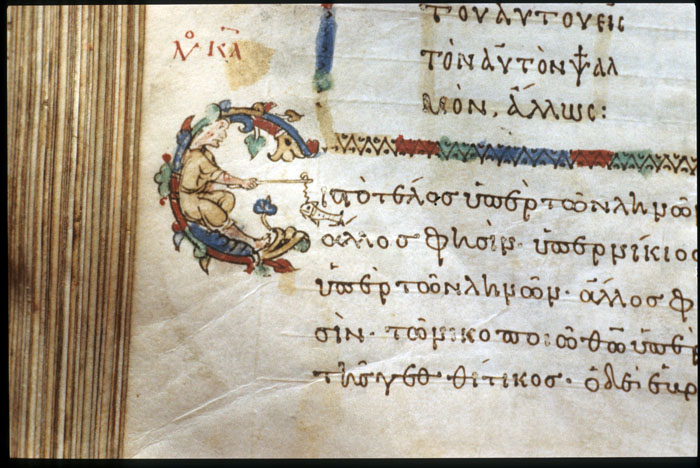 τοῦ αὐτοῦ εἰς
τὸν αὐτὸν ψαλ
μόν, ἄλλως:
Εἰς τὸ τέλος ὑπὲρ τῶν ληνῶν
ἄλλος φησίν· ὑπὲρ νίκιος
ὑπὲρ τῶν ληνῶν· ἄλλος φη
σίν· τῶ νικοποιῶ θῶ ὑπὲρ
τῆς γεθθίτικος·